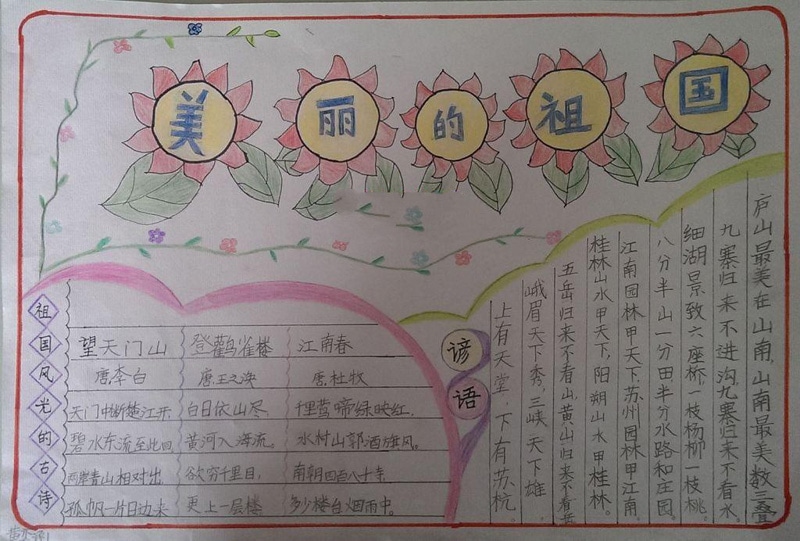 美丽的祖国
祖国风光的古诗
望天门山
唐.李白
天门中断楚江开
碧水东流至此回
两岸青山相对出
孤帆一片日边来
登鹳雀楼
唐.王之涣
白日依山尽,
黄河入海流。
欲穷千里目,
更上一层楼
江南春
唐.杜牧
千里莺啼绿映红,
水村山郭酒旗风。
南朝四百八十寺
多少楼台烟雨中。
谚语
庐山最美在山南,山南最美数三叠
九寨归来不进沟,九寨归来不看水。
细湖景致六座桥,一枝杨柳一枝桃。
八分半山一分田半分水路和庄园。
江南园林甲天下,苏州园林甲江南。
桂林山水甲天下,阳朔山水甲桂林。
五岳归来不看山,黄山归来不看岳
峨眉天下秀,三峡天下雄
上有天堂,下有苏杭。